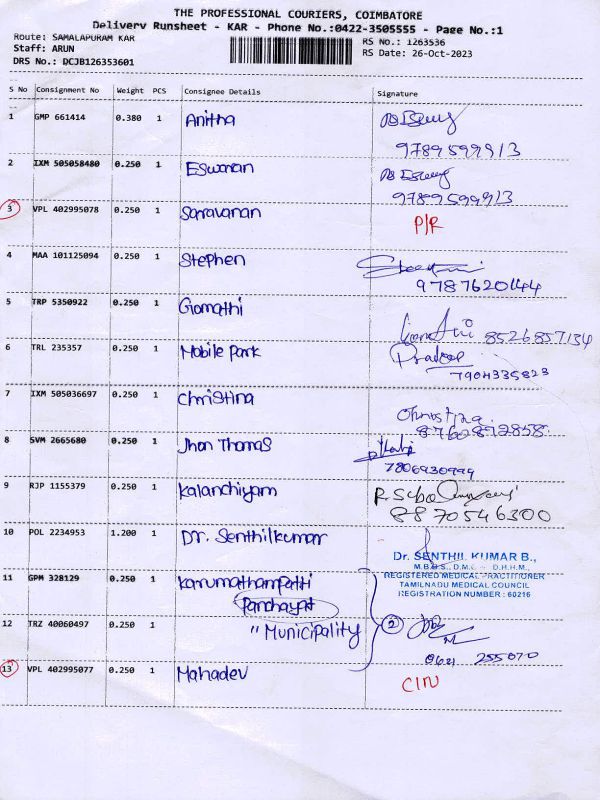 THE PROFESSIONAL COURIERS, COIMBATORE
Delivery Runsheet - KAR - Phone No.:0422-3505555 - Page No.:1
Route: SAMALAPURAM KAR
RS No.: 1263536
Staff: ARUN
RS Date: 26-Oct-2023
DRS No.: DCJB126353601
S No Consignment No Weight PCS Consignee Details Signature
1 GMP 661414 0.380 1 Anitha
9789599913
2 IXM 505058480 0.250 1 Eswaran
9789599913
3 VPL 402995078 0.250 1 Saravanan P/R
4 MAA 101125094 0.250 1 Stephen
9787620144
5 TRP 5350922 0.250 1 Gomathi
8526857134
6 TRL 235357 0.250 1 Mobile Park Pradeep
7904335823
7 IXM 505036697 0.250 1 Christina Christina
8760872858
8 SVM 2665680 0.250 1 Jhon Thomas
7806930999
9 RJP 1155379 0.250 1 Kalanchiyam
8870546300
10 POL 2234953 1.200 1 Dr. Senthilkumar
Dr. SENTHIL KUMAR B.,
M.B.B.S., D.M.C., D.H.H.M.,
REGISTERED MEDICAL PRACTITIONER
TAMILNADU MEDICAL COUNCIL
REGISTRATION NUMBER : 60216
11 GPM 328129 0.250 1 Karumathampatti
Panchayat
12 TRZ 40060497 0.250 1 " Municipality 2
0421 255070
13 VPL 402995077 0.250 1 Mahadev